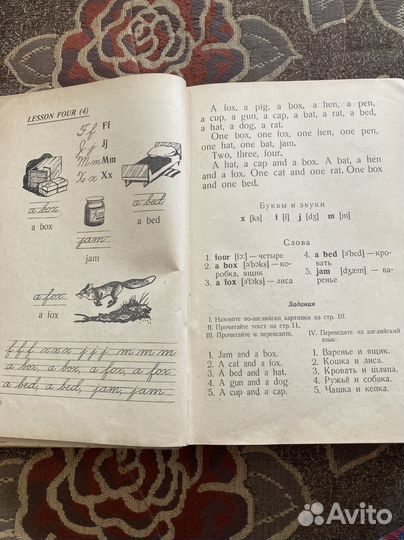 LESSON FOUR (4)
F f Ff
J j Jj
M m Mm
X x Xx
a box
a box
jam
jam
a bed
a bed
a fox
a fox
f f f x x x j j j m m m
a box, a box, a fox, a fox
a bed, a bed, jam, jam
A fox, a pig, a box, a hen, a pen,
a cup, a gun, a cap, a bat, a rat, a bed,
a hat, a dog, a rat.
One box, one fox, one hen, one pen,
one hat, one bat, jam.
Two, three, four.
A hat, a cap and a box. A bat, a hen
and a fox. One cat and one rat. One box
and one bed.
Буквы и звуки
x [ks] f [f] j [dʒ] m [m]
Слова
1. four [fɔ:] — четыре
2. a box [ə'bɔks] — ко-
робка, ящик
3. a fox [ə'fɔks] — лиса
4. a bed [ə'bed] — кро-
вать
5. jam [dʒæm] — ва-
ренье
Задания
I. Назовите по-английски картинки на стр. 10.
II. Прочитайте текст на стр. 11.
III. Прочитайте и переведите.
1. Jam and a box.
2. A cat and a fox.
3. A bed and a hat.
4. A gun and a dog.
5. A cup and a cap.
IV. Переведите на английский
язык:
1. Варенье и ящик.
2. Кошка и лиса.
3. Кровать и шляпа.
4. Ружьё и собака.
5. Чашка и кепка.
Avito